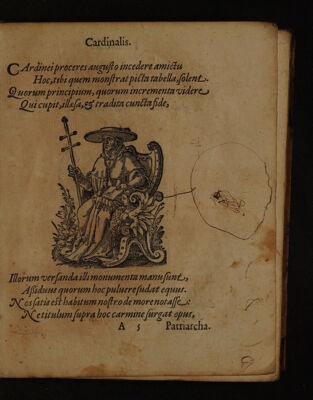 Cardinalis.
CArdinei proceres augusto incedere amictu
Hoc, tibi quem monstrat picta tabella, solent.
Quorum principium, quorum incrementa videre
Qui cupit, illæsa, & tradita cuncta fide,
Illorum versanda illi monumenta manu sunt,
Assiduus quorum hoc puluere sudat equus.
Nos satis est habitum nostro de more notasse:
Ne titulum supra hoc carmine surgat opus,
A 5 Patriarcha.